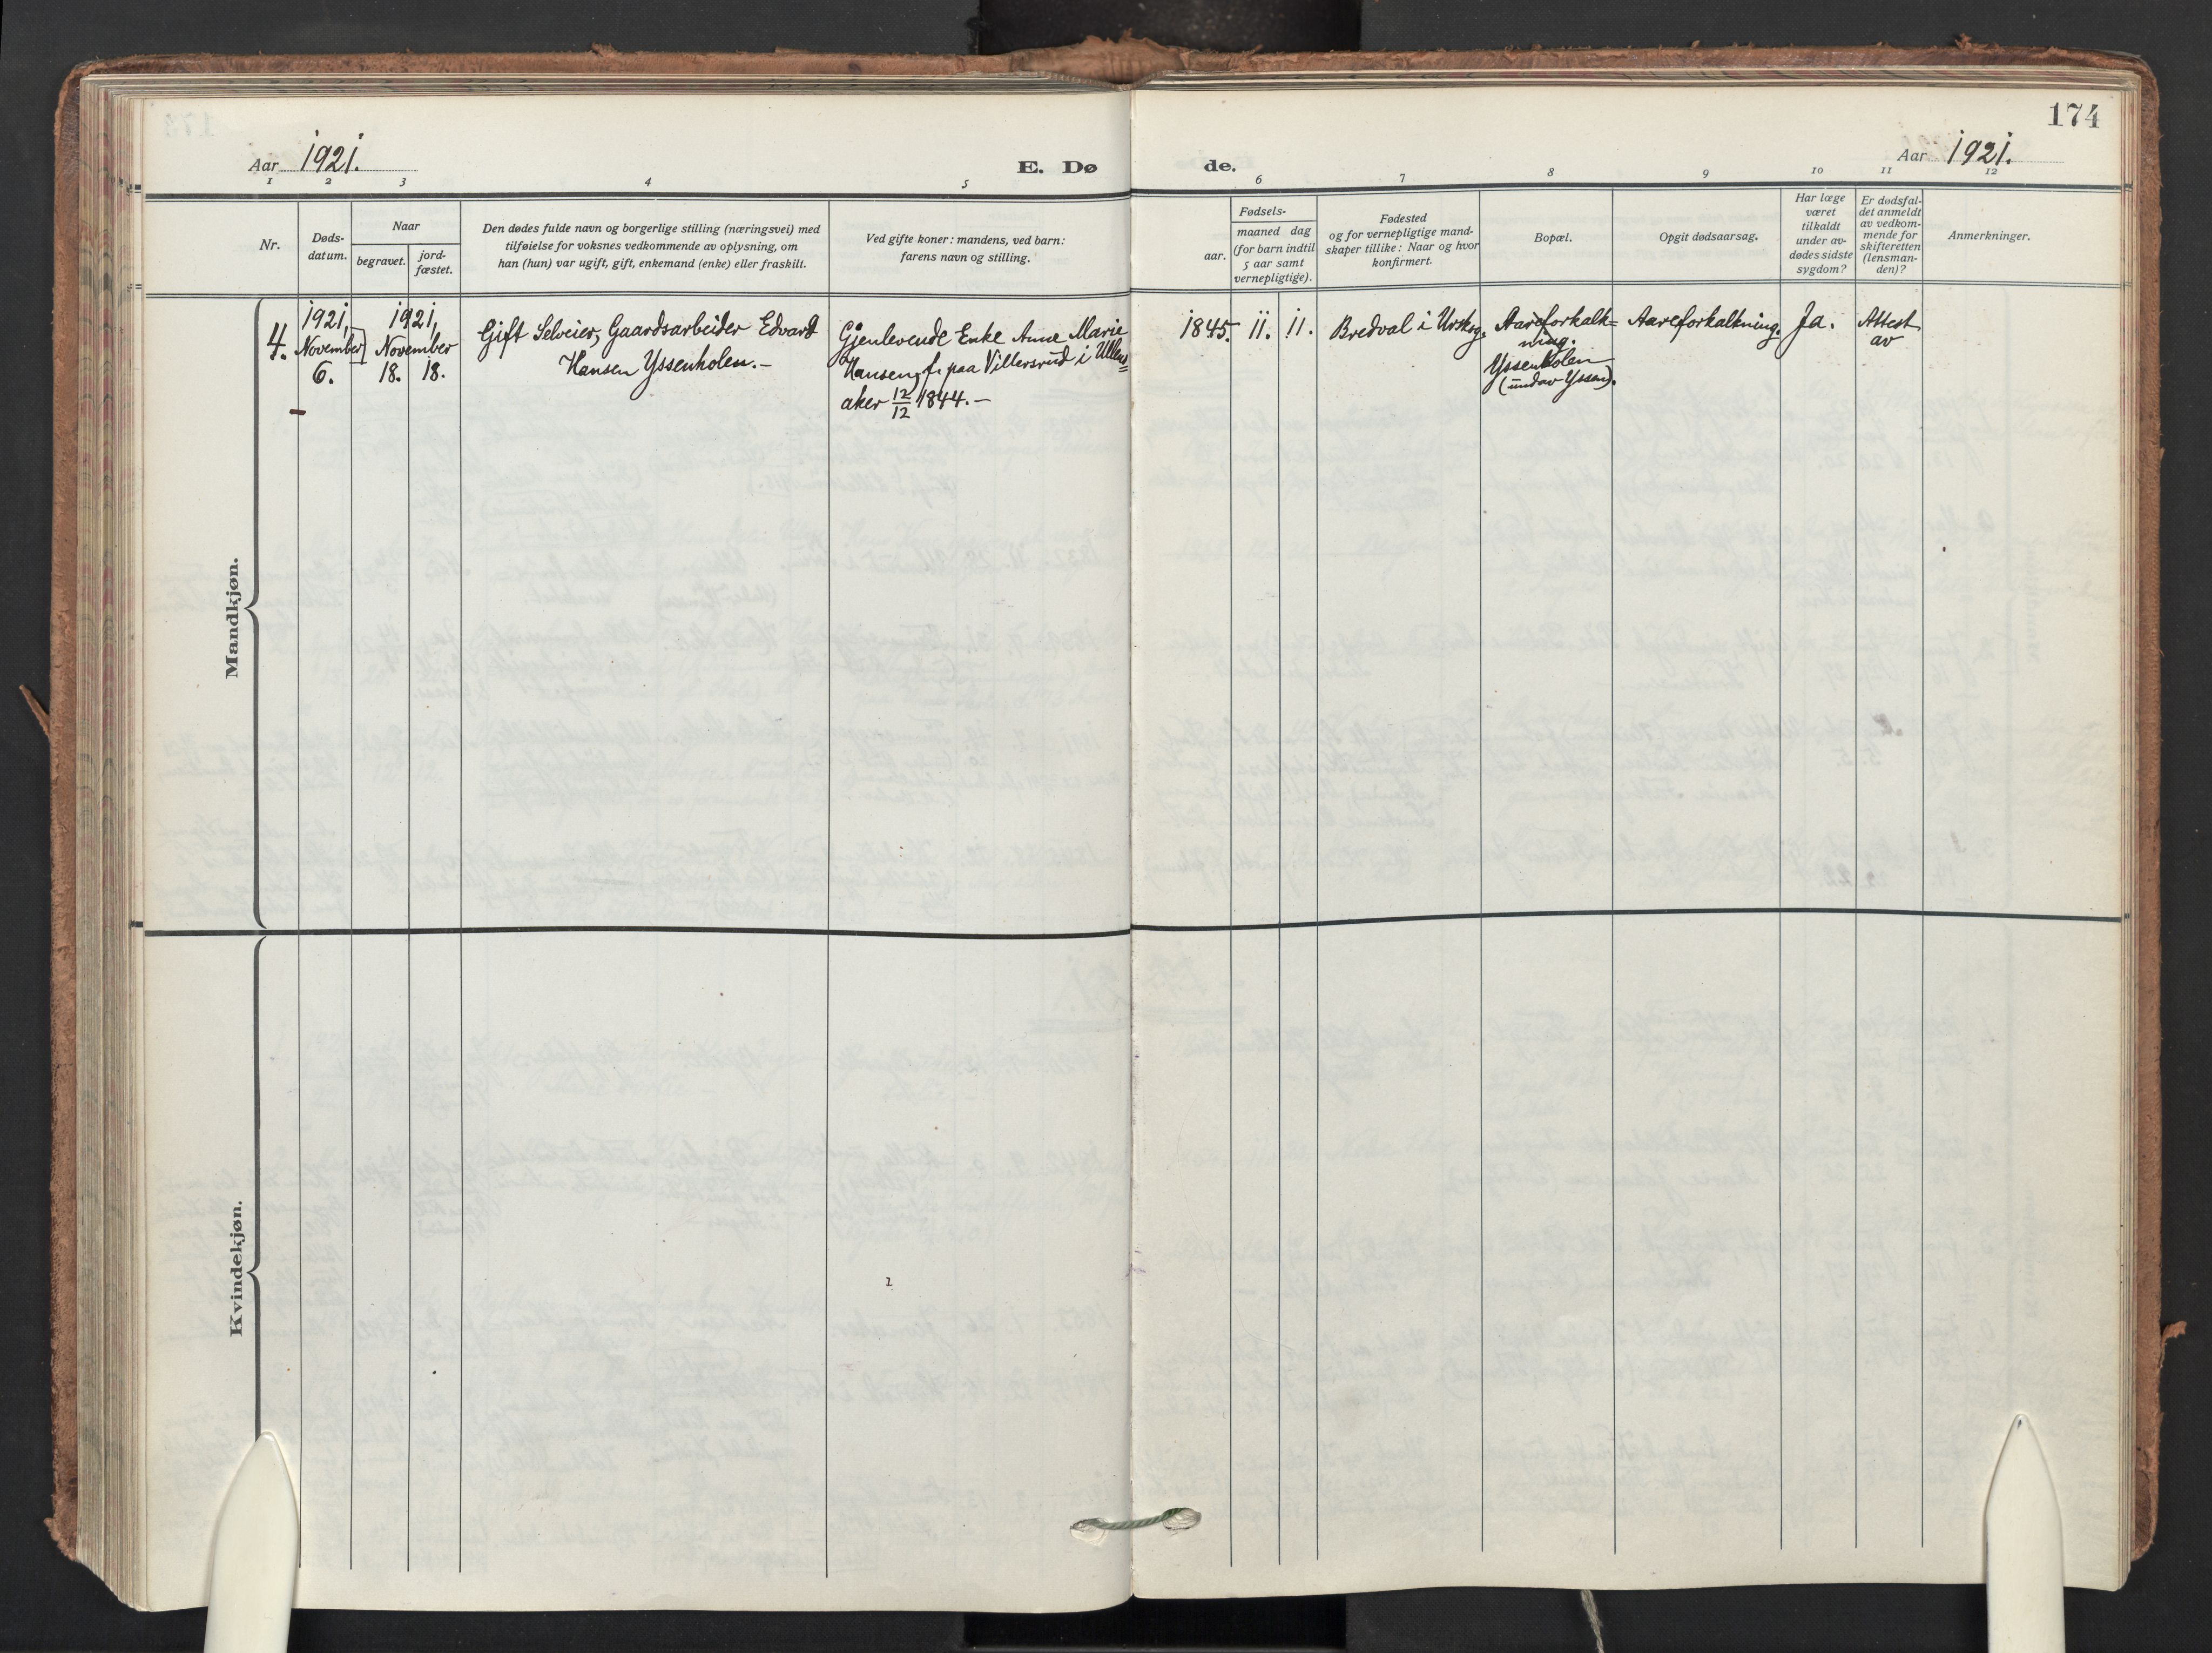 174
Aar 1921.
E. Dø
de.
Aar 1921.
1 2 3 4 5
6 7 8 9 10 11 12
Nr.
Døds-
datum.
Naar
begravet.
jord-
fæstet.
Den dødes fulde navn og borgerlige stilling (næringsvei) med
tilføielse for voksnes vedkommende av oplysning, om
han (hun) var ugift, gift, enkemand (enke) eller fraskilt.
Ved gifte koner: mandens, ved barn:
farens navn og stilling.
Fødsels-
aar.
maaned dag
(for barn indtil
5 aar samt
vernepligtige).
Fødested
og for vernepligtige mand-
skaper tillike: Naar og hvor
konfirmert.
Bopæl.
Opgit dødsaarsag.
Har læge
været
tilkaldt
under av-
dødes sidste
sygdom?
Er dødsfal-
det anmeldt
av vedkom-
mende for
skifteretten
(lensman-
den)?
Anmerkninger.
Mandkjøn.
4.
1921,
November
6.
1921,
November
18. 18.
Gift Selveier, Gaardsarbeider Edvard
Hansen Yssenholen.-
Gjenlevende Enke Anne Marie
Hansen, f. paa Villersrud i Ullens=
aker 12/12 1844.-
1845. 11. 11.
Bredval i Urskog.
Aareforkalk=
ning.
Yssenholen
(undav Yssen).
Aareforkalkning.
Ja.
Attest
av
Kvindekjøn.